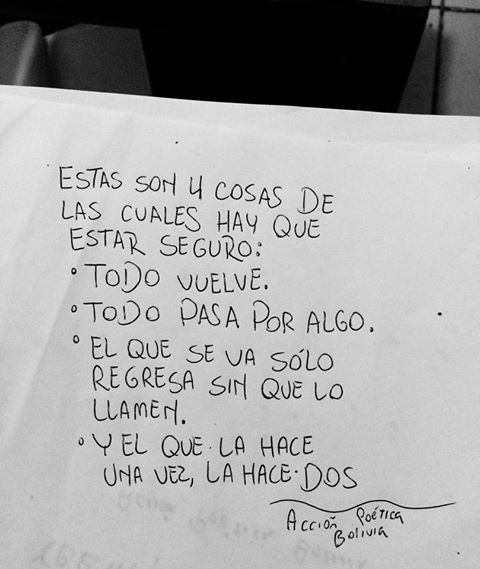 ESTAS SON 4 COSAS DE
LAS CUALES HAY QUE
ESTAR SEGURO:
• TODO VUELVE.
• TODO PASA POR ALGO.
• EL QUE SE VA SÓLO
REGRESA SIN QUE LO
LLAMEN.
• Y EL QUE LA HACE
UNA VEZ, LA HACE DOS
Acción Poética
Bolivia